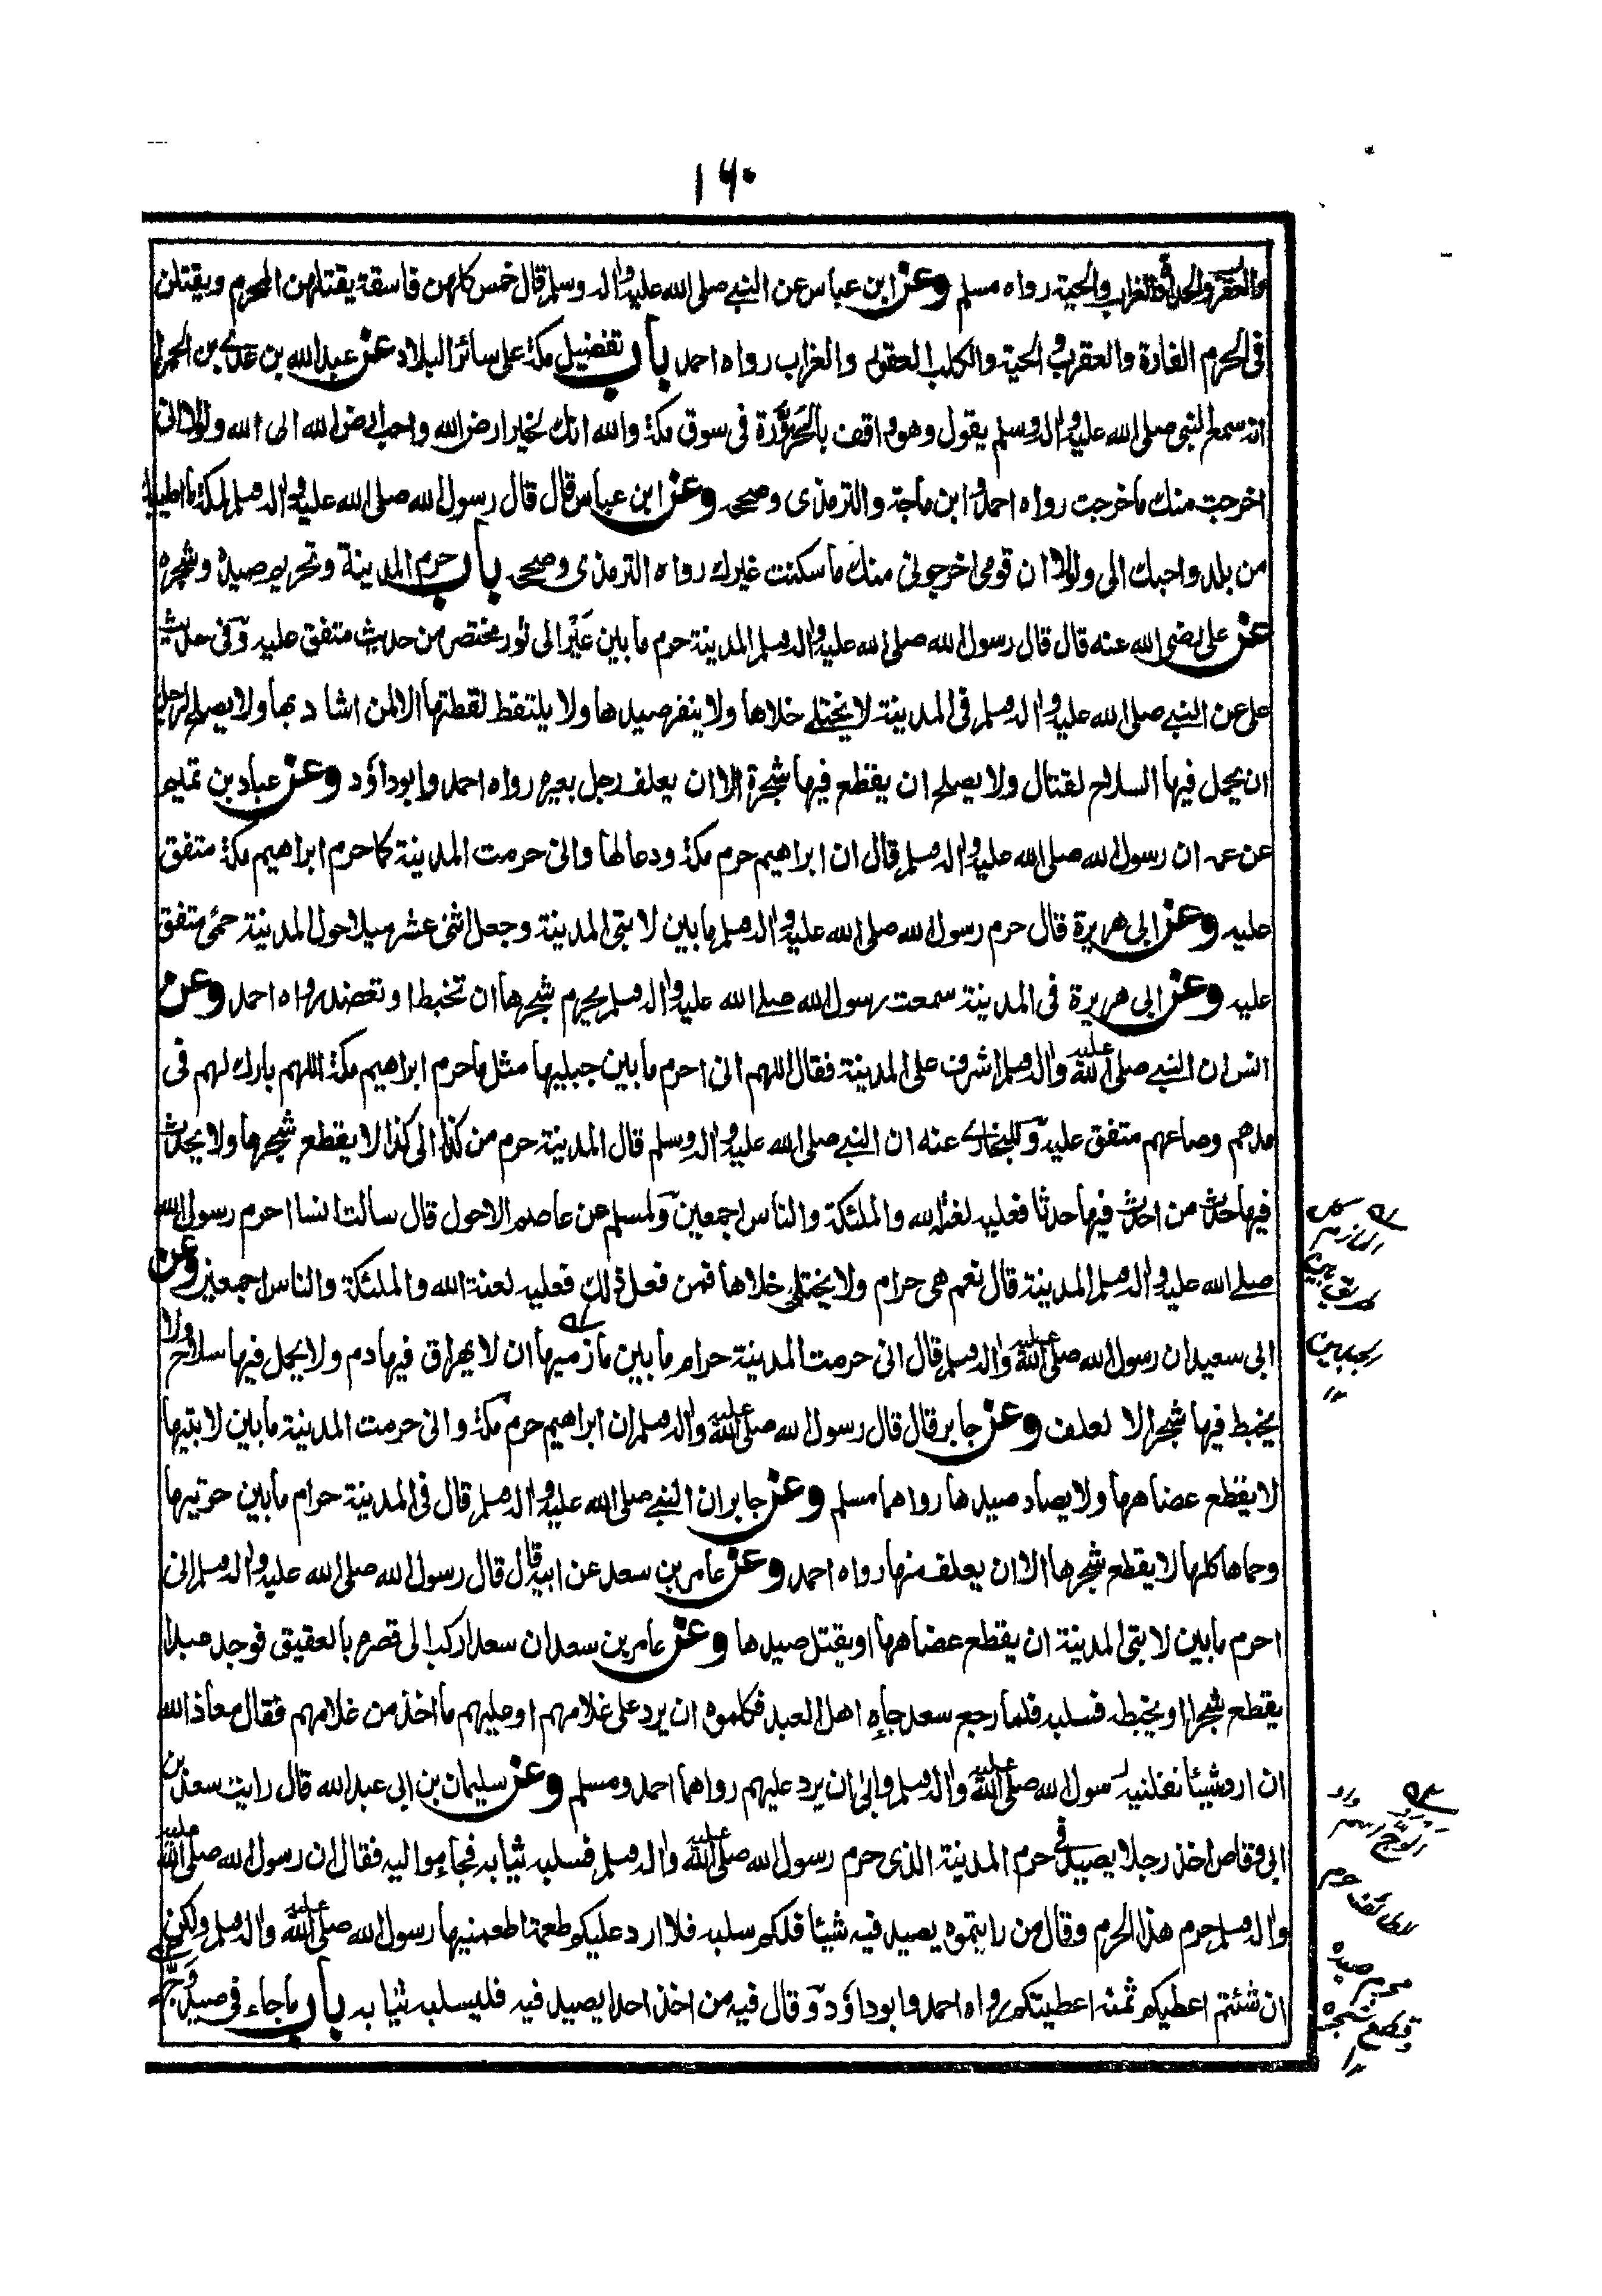 ۱۶۰
والعقرب والحدأة والغراب والحية رواه مسلم وعن ابن عباس عن النبي صلى الله عليه واله وسلم قال خمس كلهن فاسقة يقتلهن المحرم ويقتلن
فى الحرم الفارة والعقرب والحية والكلب العقور والغراب رواه احمد باب تفضيل مكة على سائر البلاد عن عبد الله بن عدي بن الحمراء
انه سمع النبى صلى الله عليه واله وسلم يقول وهو واقف بالحَزْوَرَة فى سوق مكة والله انك لخير ارض الله واحب ارض الله الى الله ولولا انى
اخرجت منك ما خرجت رواه احمد وابن ماجة والترمذى وصححه وعن ابن عباس قال قال رسول الله صلى الله عليه واله وسلم لمكة ما اطيبك
من بلد واحبك الى ولولا ان قومى اخرجونى منك ما سكنت غيرك رواه الترمذى وصححه باب حرم المدينة وتحريم صيده وشجره
عن على رضى الله عنه قال قال رسول الله صلى الله عليه واله وسلم المدينة حرم ما بين عَيْر الى ثور مختصر من حديث متفق عليه وّفى حديث
على عن النبي صلى الله عليه واله وسلم فى المدينة لا يختلى خلاها ولا ينفر صيدها ولا يلتقط لقطتها الا لمن اشاد بها ولا يصلح لرجل
ان يحمل فيها السلاح لقتال ولا يصلح ان يقطع فيها شجرة الا ان يعلف رجل بعيره رواه احمد وابوداؤد وعن عباد بن تميم
عن عمه ان رسول الله صلى الله عليه واله وسلم قال ان ابراهيم حرم مكة ودعا لها وانى حرمت المدينة كما حرم ابراهيم مكة متفق
عليه وعن ابى هريرة قال حرم رسول الله صلى الله عليه واله وسلم ما بين لابتى المدينة وجعل اثنى عشر ميلا حول المدينة حمى متفق
عليه وعن ابى هريرة فى المدينة سمعت رسول الله صلے الله عليه واله وسلم يحرم شجرها ان تخبط او تعضد رواه احمد وعن
انس ان النبي صلى الله عليه واله وسلم اشرف على المدينة فقال اللهم انى احرم ما بين جبليها مثل ما حرم ابراهيم مكة اللهم بارك لهم فى
مدهم وصاعهم متفق عليه وّللبخاري عنه ان النبي صلى الله عليه واله وسلم قال المدينة حرم من كذا الى كذا لا يقطع شجرها ولا يحدث
فيها حدث من احدث فيها حدثا فعليه لعنة الله والملئكة والناس اجمعين وّلمسلم عن عاصم الاحول قال سالت انسا احرم رسول الله
صلے الله عليه واله وسلم المدينة قال نعم هى حرام ولا يختلى خلاها فمن فعل ذلك فعليه لعنة الله والملئكة والناس اجمعين وعن
ابى سعيد ان رسول الله صلى الله عليه واله وسلم قال انى حرمت المدينة حرام ما بين مازميها ان لا يهراق فيها دم ولا يحمل فيها سلاح ولا
يخبط فيها شجر الا لعلف وعن جابر قال قال رسول الله صلى الله عليه واله وسلم ان ابراهيم حرم مكة وانى حرمت المدينة ما بين لابتيها
لا يقطع عضاهها ولا يصاد صيدها رواهما مسلم وعن جابر ان النبي صلى الله عليه واله وسلم قال فى المدينة حرام ما بين حرتيها
وحماها كلها لا يقطع شجرها الا ان يعلف منها رواه احمد وعن عامر بن سعد عن ابيه قال قال رسول الله صلى الله عليه واله وسلم انى
احرم ما بين لابتى المدينة ان يقطع عضاهها او يقتل صيدها وعن عامر بن سعد ان سعدا ركب الى قصره بالعقيق فوجد عبدا
يقطع شجرا او يخبطه فسلبه فلما رجع سعد جاءه اهل العبد فكلموه ان يرد على غلامهم او عليهم ما اخذ من غلامهم فقال معاذ الله
ان ارد شيئا نفلنيه رسول الله صلى الله عليه واله وسلم وابى ان يرد عليهم رواهما احمد ومسلم وعن سليمان بن ابى عبد الله قال رايت سعد بن
ابى وقاص اخذ رجلا يصيد فى حرم المدينة الذى حرم رسول الله صلى الله عليه واله وسلم فسلبه ثيابه فجاء مواليه فقال ان رسول الله صلى الله عليه
واله وسلم حرم هذا الحرم وقال من رايتموه يصيد فيه شيئا فلكم سلبه فلا ارد عليكم طعمة اطعمنيها رسول الله صلى الله عليه واله وسلم ولكن
ان شئتم اعطيكم ثمنه اعطيتكم رواه احمد وابوداؤد وّقال فيه من اخذ احدا يصيد فيه فليسلبه ثيابه باب ما جاء فى صيد وَجٍّ
المازم
بين
الجبلين
محرم صيده
قطع شجره